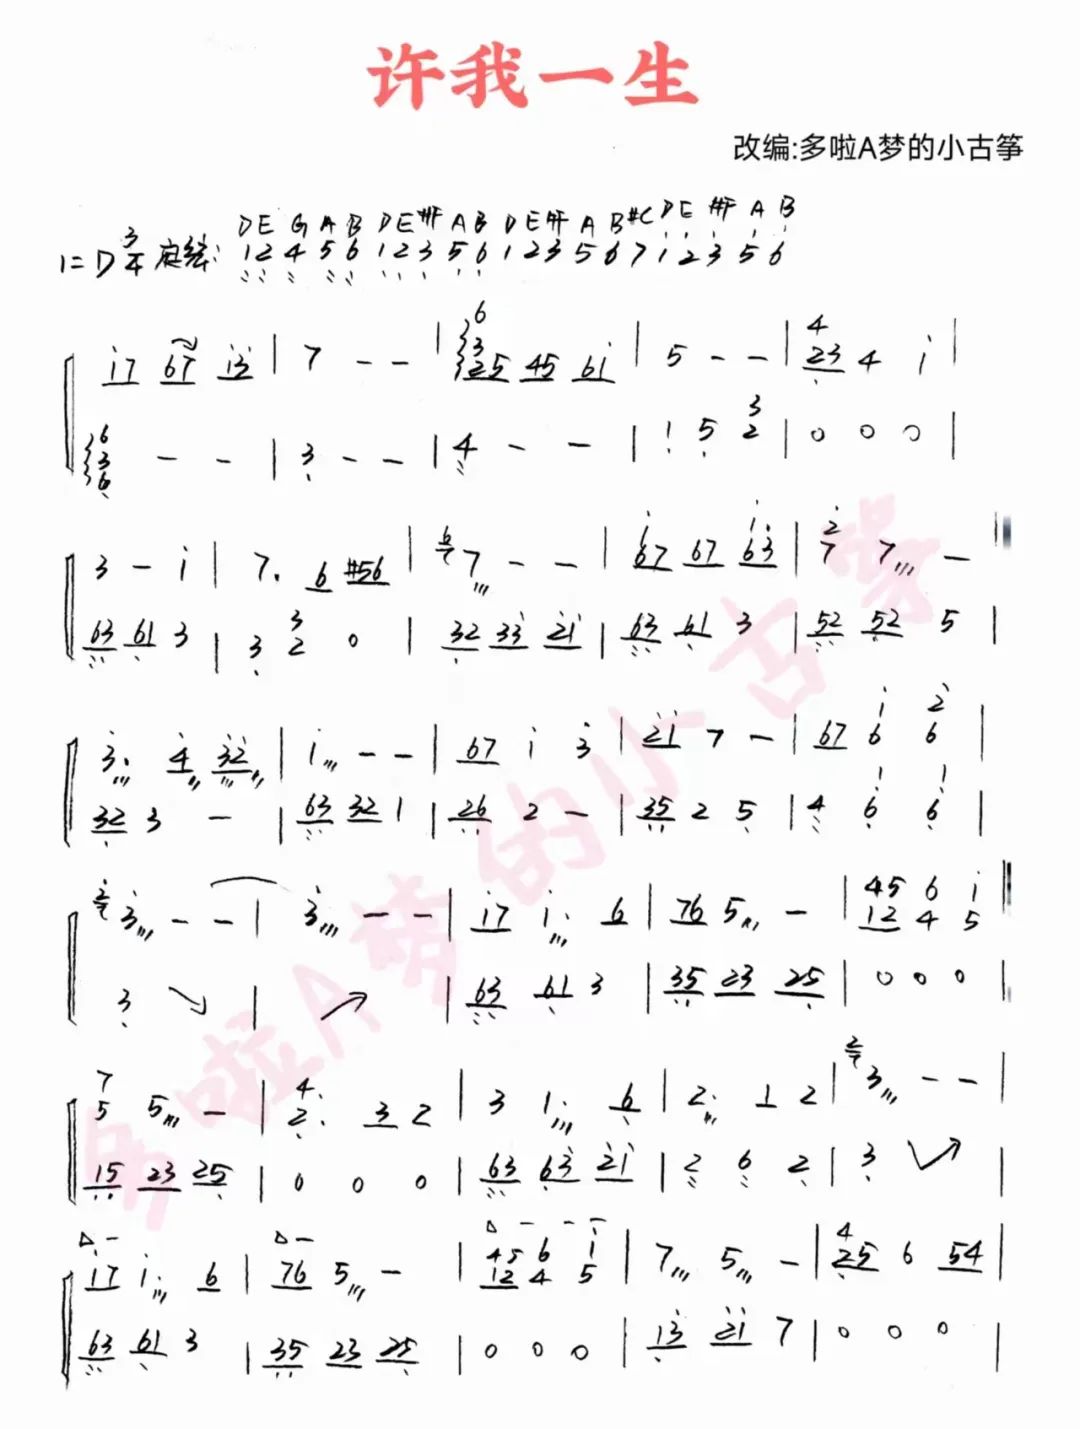 许我一生
改编:多啦A梦的小古筝
DE G A B DE #F A B D E #F A B #C D E #F A B
1=D 3/4 定弦: 1 2 4 5 6 1 2 3 5 6 1 2 3 5 6 7 1 2 3 5 6
17 67 13 | 7 - - | 6 3 25 45 61 | 5 - - | 4 23 4 1 |
6 3 6 - - | 3 - - | 4 - - | 1 5 3 2 | 0 0 0 |
3 - 1 | 7. 6 #56 | 6 7 - - | 1 67 67 1 63 | 2 7 7 -
63 61 3 | 3 3 2 0 | 32 33 21 | 63 61 3 | 52 52 5 |
3. 4 32 | 1 - - | 67 1 3 | 21 7 - | 67 1 6 2 6 |
32 3 - | 63 32 1 | 26 2 - | 35 2 5 | 4 1 6 1 6 |
2 3 - - | 3 - - | 17 1. 6 | 76 5 - | 45 6 1 12 4 5
3 ↘ | ↗ | 63 61 3 | 35 23 25 | 0 0 0
7 5 5 - | 4 2. 3 2 | 3 1. 6 | 2. 1 2 | 2 3 - - |
15 23 25 | 0 0 0 | 63 63 21 | 2 6 2 | 3 ↘ ↗ |
17 1. 6 | 76 5 - | 45 6 1 12 4 5 | 7 5 - | 4 25 6 54 |
63 61 3 | 35 23 25 | 0 0 0 | 13 21 7 | 0 0 0 |
多啦A梦的小古筝